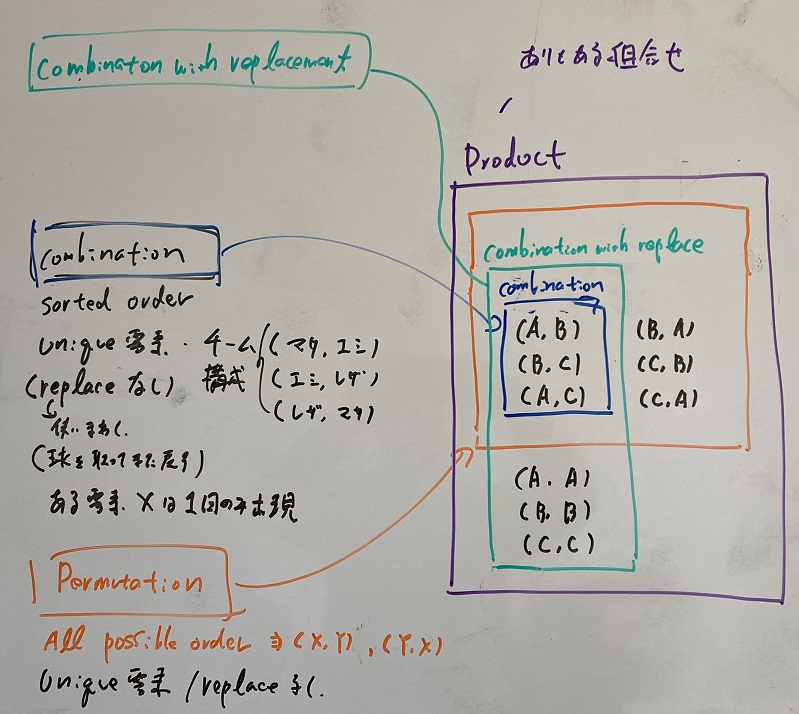 Combinaton with replacement
ありとある組合せ
Product
Combination with replace
combination
(A, B) (B, A)
(B, C) (C, B)
(A, C) (C, A)
(A, A)
(B, B)
(C, C)
Combination
Sorted order
Unique 要素. チーム構成 (マタ, エミ)
(エミ, レザ)
(レザ, マタ)
(replace なし)
使いまわし
(球を取ってまた戻す)
ある要素 X は1回のみ出現
Permutation
All possible order ∋ (X, Y), (Y, X)
Unique 要素 / replace なし